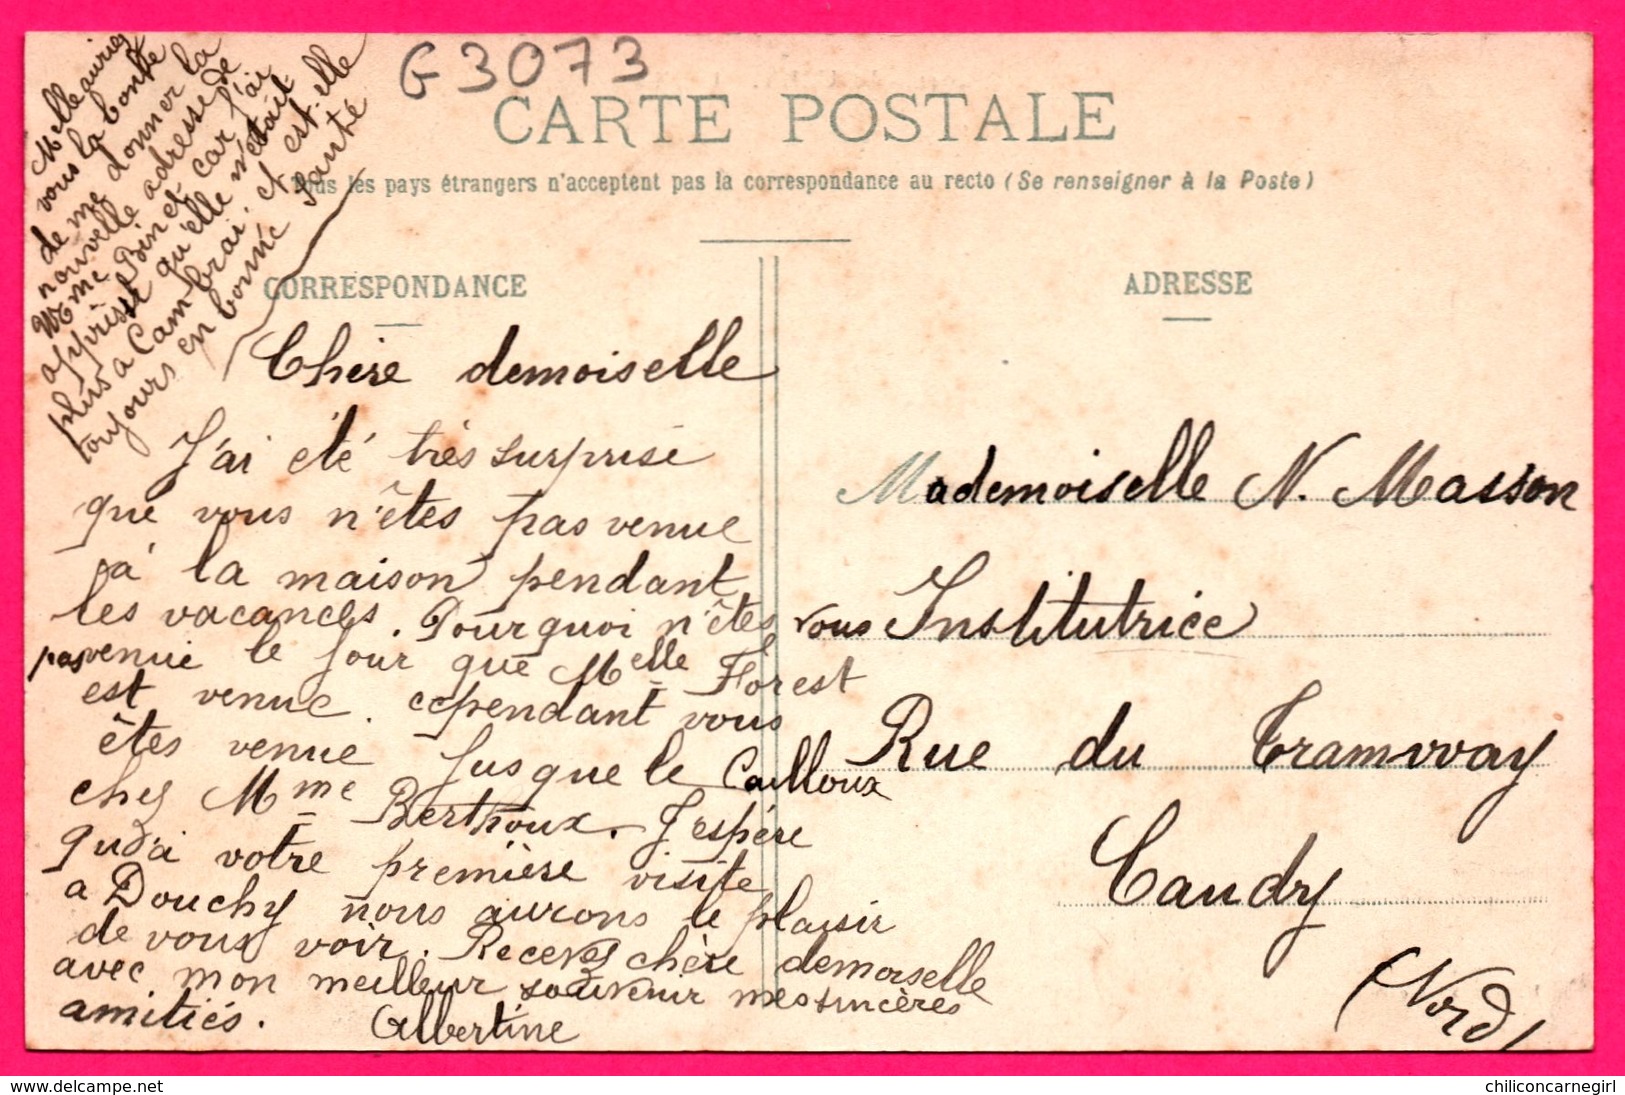 G3073
CARTE POSTALE
Tous les pays étrangers n'acceptent pas la correspondance au recto (Se renseigner à la Poste)
CORRESPONDANCE
ADRESSE
Melle auriez
vous la bonté
de me donner la
nouvelle adresse de
Mme Binet car j'ai
appris qu'elle n'était
plus a Cambrai, et est-elle
toujours en bonne santé
Chère demoiselle
J'ai été très surprise
que vous n'êtes pas venue
à la maison pendant
les vacances. Pourquoi n'êtes vous
pas venue le jour que Melle Forest
est venue. cependant vous
êtes venue jusque le Cailloux
chez Mme Berthoux. J'espère
qu'à votre première visite
a Douchy nous aurons le plaisir
de vous voir. Recevez chère demoiselle
avec mon meilleur souvenir mes sincères
amitiés. Albertine
Mademoiselle N. Masson
Institutrice
Rue du Tramway
Caudry
(Nord)
© delcampe.net
chiliconcarnegirl